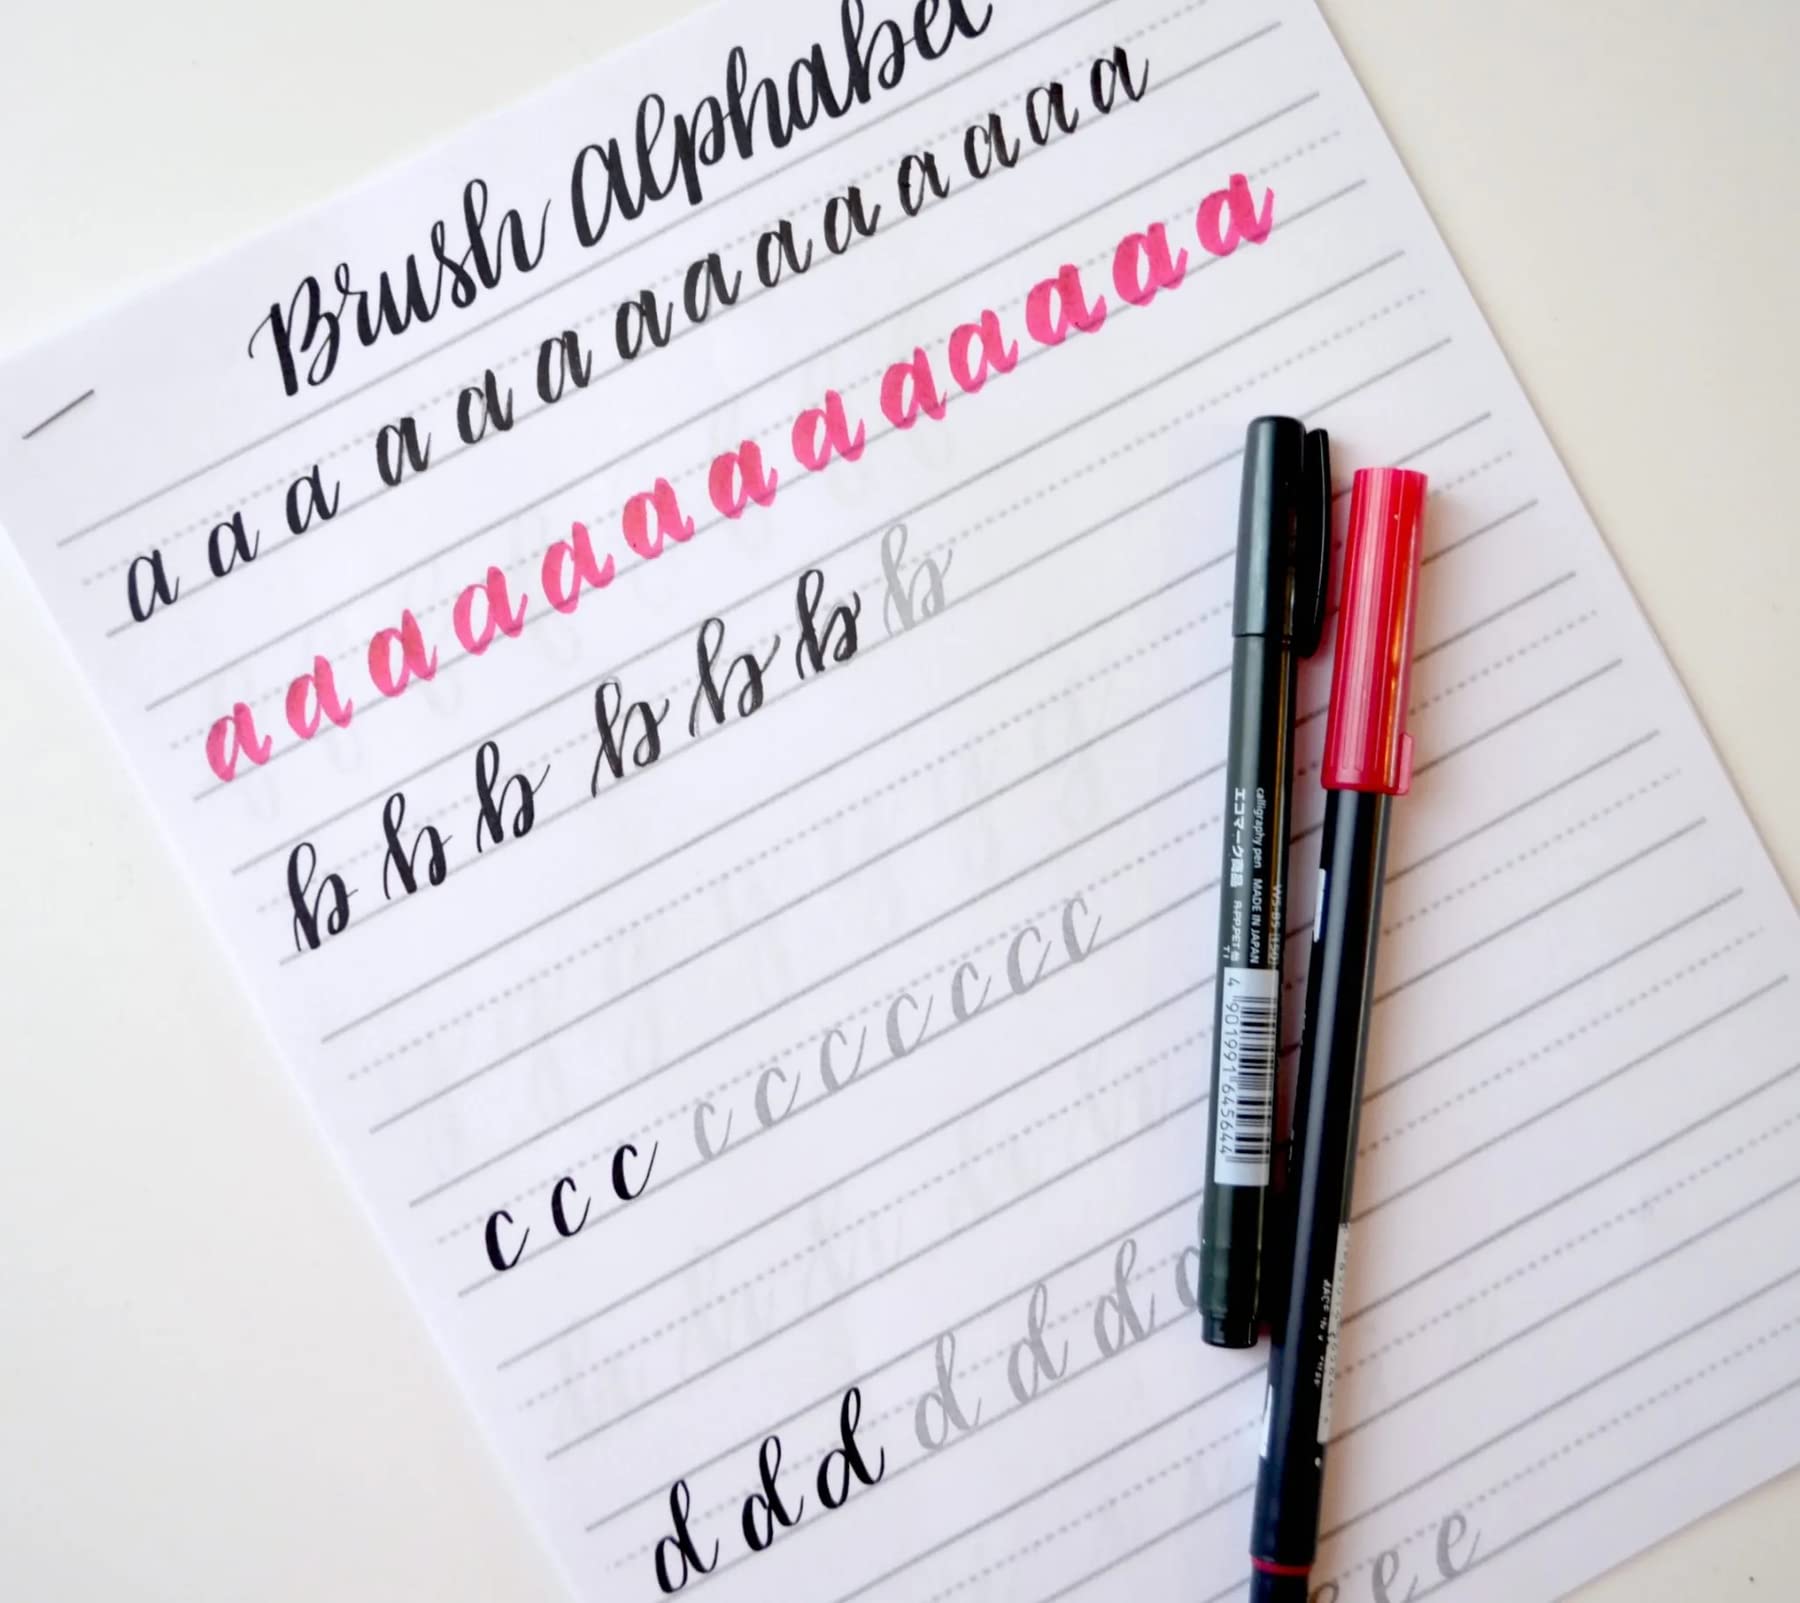 Brush Alphabet
a a a a a a a a a a a a a a
a a a a a a a a a a a a a
b b b b b b b
c c c c c c c c c c
d d d d d d d
e e e
WS-BS (150)
calligraphy pen MADE IN JAPAN
エコマーク商品
4 901991 645644